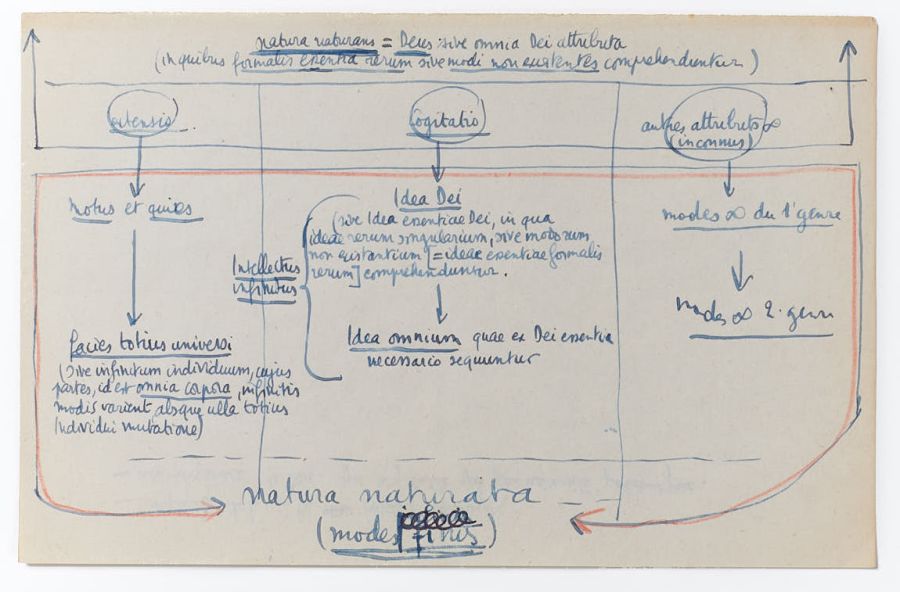 natura naturans = Deus sive omnia Dei attributa
(in quibus formalis essentia rerum sive modi non existentes comprehenduntur)
extensio
Cogitatio
autres attributs ∞
(inconnus)
Motus et quies
Idea Dei
(sive Idea essentiae Dei, in qua
ideae rerum singularium, sive modorum
non existantium [= ideae essentiae formalis
rerum] comprehenduntur.
modes ∞ du 1er genre
Intellectus
infinitus
modes ∞ 2e genre
facies totius universi
(sive infinitum individuum, cujus
partes, id est omnia corpora, infinitis
modis varient absque ulla totius
Individui mutatione)
Idea omnium quae ex Dei essentia
necessario sequuntur
natura naturata
(modes finis)